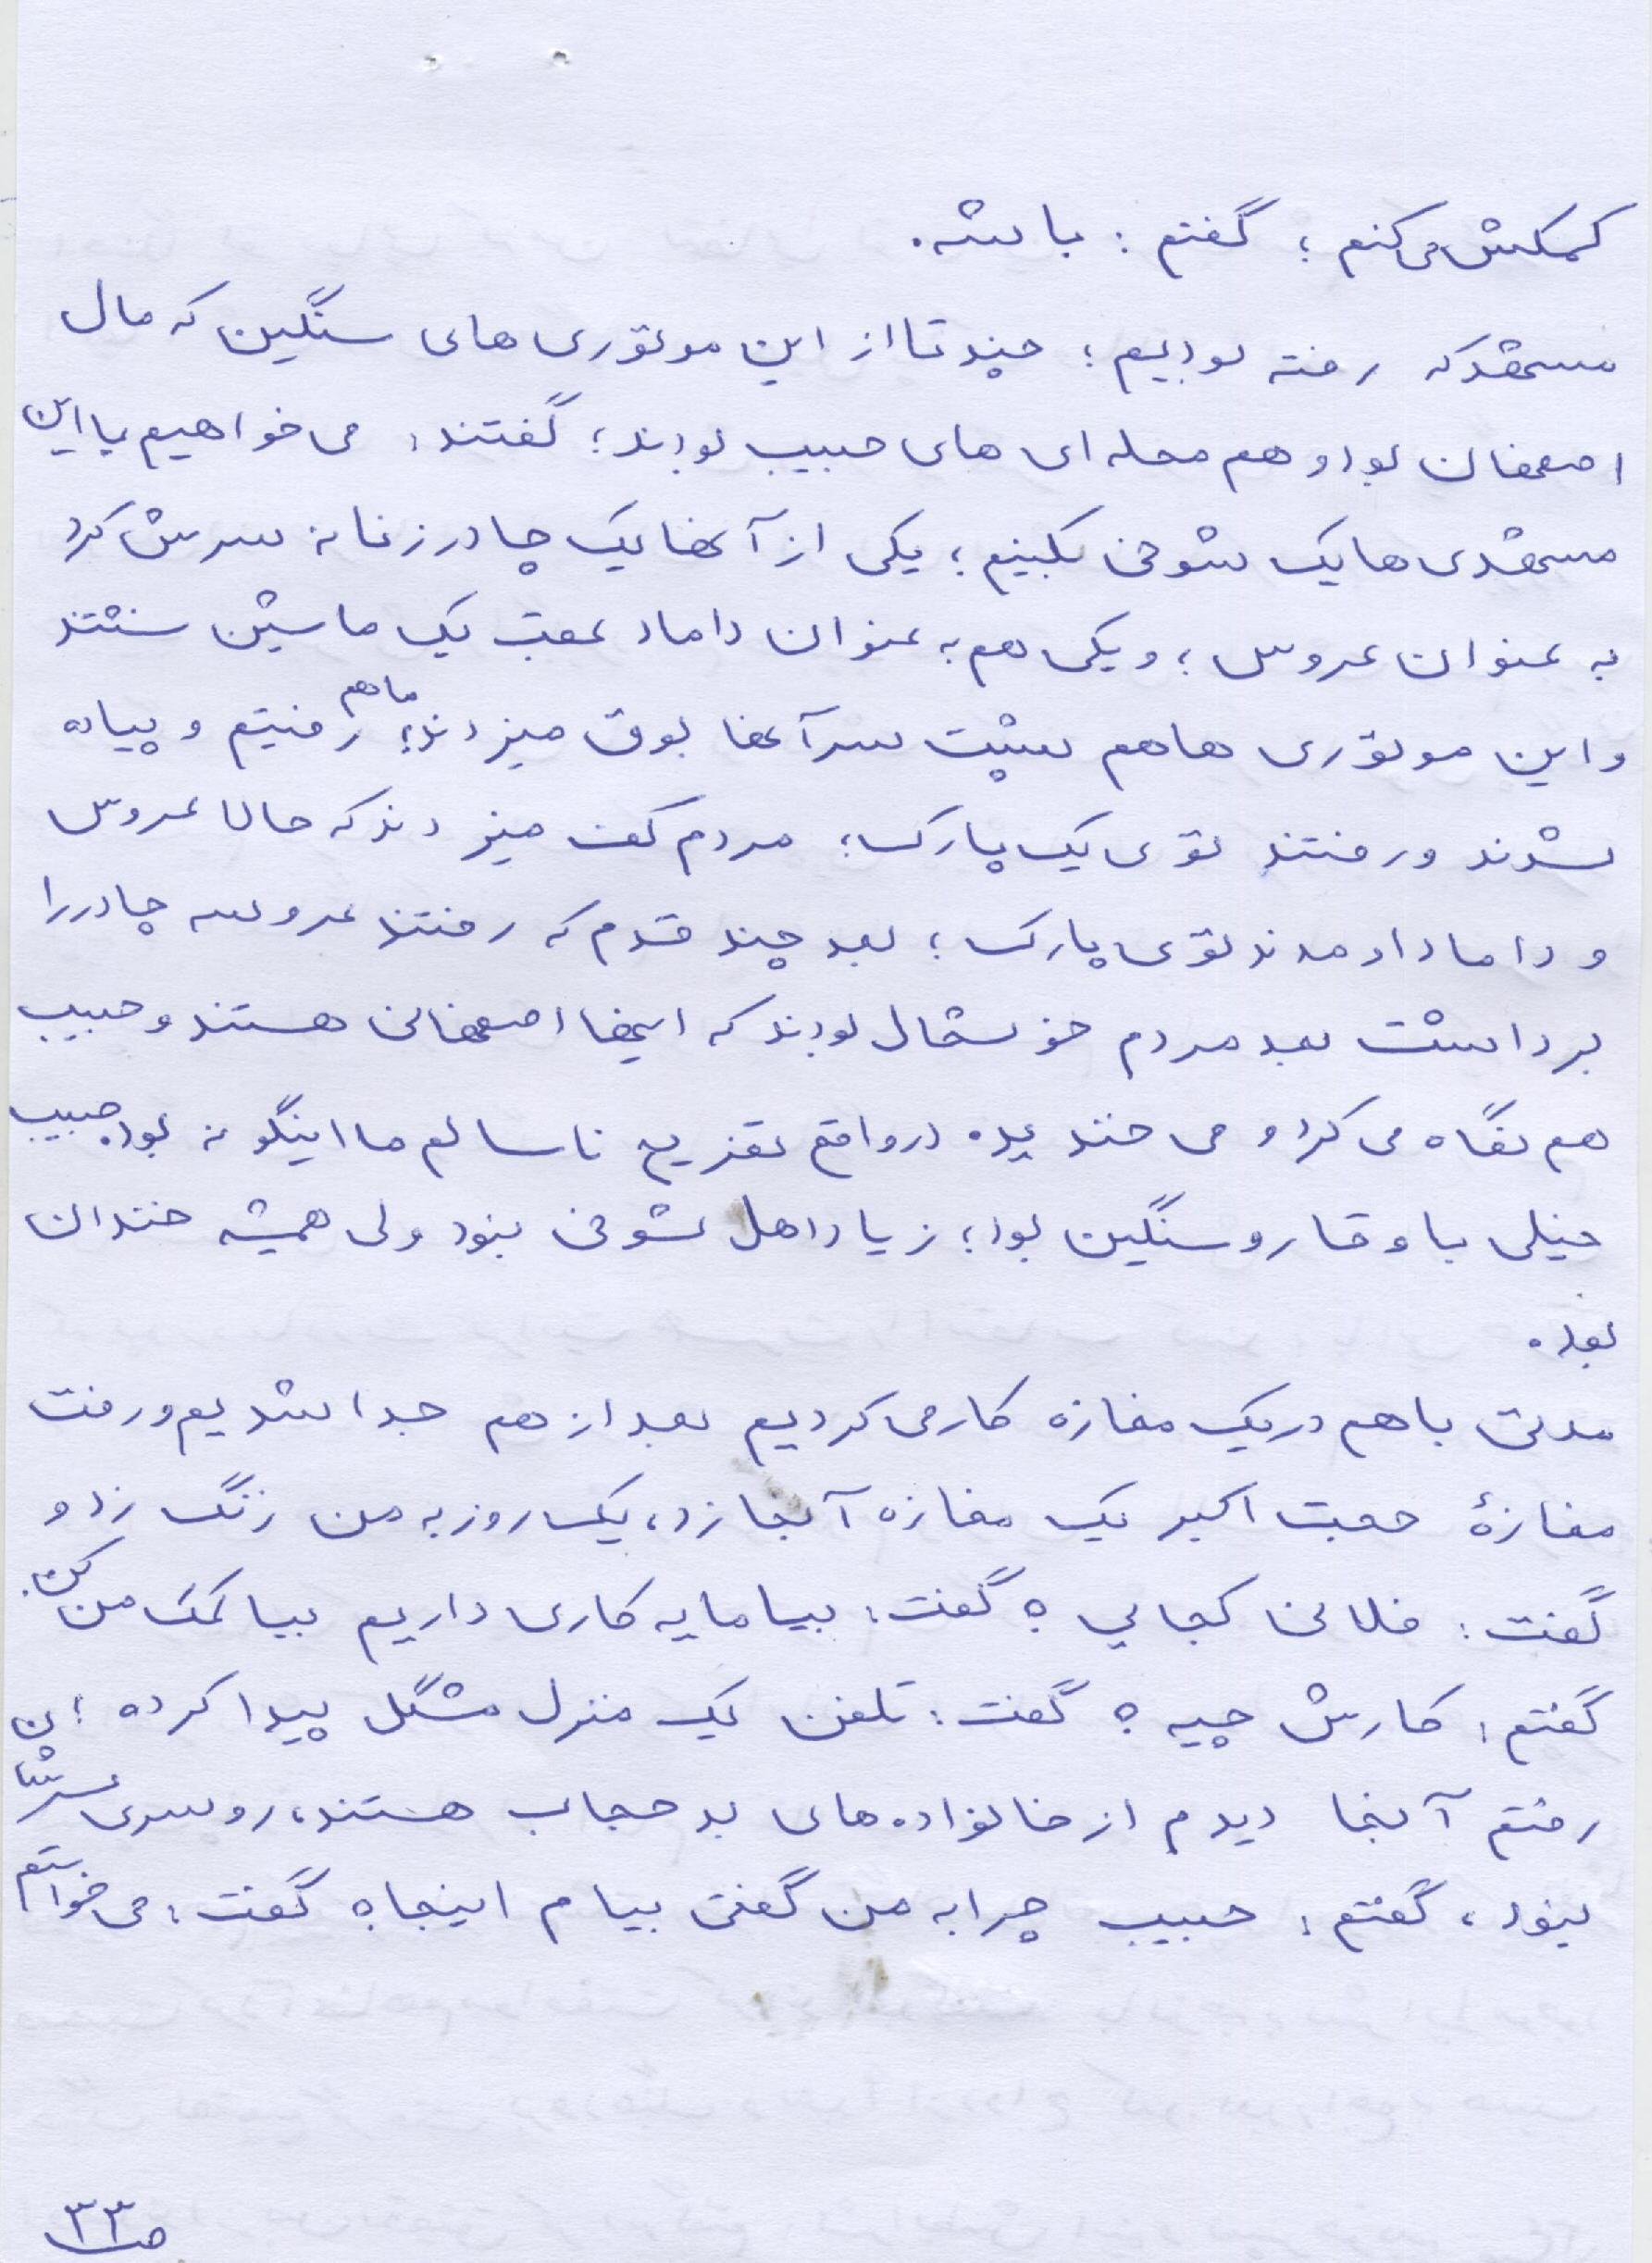 کمکش می‌کنم؛ گفتم: باشه.
مشهد که رفته بودیم؛ چند تا از این موتوری های سنگین که مال
اصفهان بود و هم محله ای های حبیب بودند؛ گفتند: می خواهیم با این
مشهدی ها یک شوخی بکنیم؛ یکی از آنها یک چادر زنانه سرش کرد
به عنوان عروس؛ و یکی هم به عنوان داماد عقب یک ماشین نشستند
و این موتوری ها هم پشت سر آنها بوق میزدند؛ ما هم رفتیم و پیاده
شدند و رفتند توی یک پارک؛ مردم کف میزدند که حالا عروس
و داماد اومدند توی پارک؛ بعد چند قدم که رفتند عروسه چادر را
برداشت بعد مردم خوشحال بودند که اینها اصفهانی هستند و حبیب
هم نگاه می کرد و می خندید. در واقع تفریح ناسالم ما اینگونه بود. حبیب
خیلی با وقار و سنگین بود؛ زیاد اهل شوخی نبود ولی همیشه خندان
بود.
مدتی با هم در یک مغازه کار می کردیم بعد از هم جدا شدیم و رفت
مغازهٔ حجت اکبر یک مغازه آنجا زد، یک روز به من زنگ زد و
گفت: فلانی کجایی؟ گفت: بیا ما یه کاری داریم بیا کمک من کن.
گفتم: کارش چیه؟ گفت: تلفن یک منزل مشگل پیدا کرده؛ من
رفتم آنجا دیدم از خانواده های بد حجاب هستند، روسری سرشان
نبود، گفتم: حبیب چرا به من گفتی بیام اینجا؟ گفت: می خواستم
ص۳۳